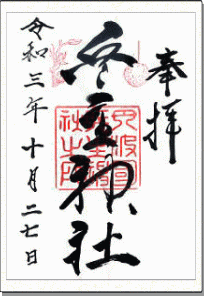 奉拝
兵主神社
令和三年十月二七日